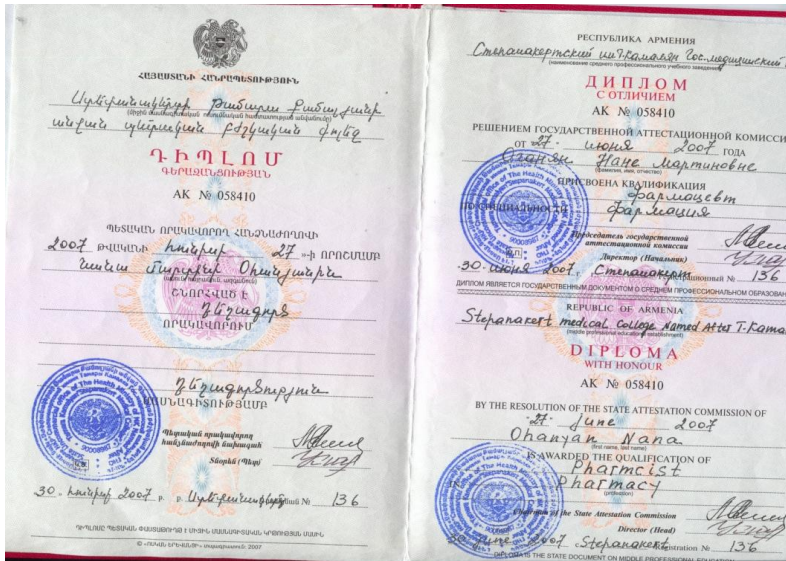 ՀԱՅԱՍՏԱՆԻ ՀԱՆՐԱՊԵՏՈՒԹՅՈՒՆ
Ստեփանակերտի Թամարա Քամալյանի
անվան պետական բժշկական քոլեջ
ԴԻՊԼՈՄ
ԳԵՐԱԶԱՆՑՈՒԹՅԱՆ
AK № 058410
ՊԵՏԱԿԱՆ ՈՐԱԿԱՎՈՐՈՂ ՀԱՆՁՆԱԺՈՂՈՎԻ
2007 ԹՎԱԿԱՆԻ հունիսի 27 »-Ի ՈՐՈՇՄԱՄԲ
Օհանյանին
ՇՆՈՐՀՎԱԾ Է
Դեղագործ
ՈՐԱԿԱՎՈՐՈՒՄ
Դեղագործություն
ՄԱՍՆԱԳԻՏՈՒԹՅԱՄԲ
Պետական որակավորող
հանձնաժողովի նախագահ
Տնօրեն (Պետ)
30. հունիսի 2007 թ. ք. Ստեփանակերտ № 136
ԴԻՊԼՈՄԸ ՊԵՏԱԿԱՆ ՓԱՍՏԱԹՈՒՂԹ Է ՄԻՋԻՆ ՄԱՍՆԱԳԻՏԱԿԱՆ ԿՐԹՈՒԹՅԱՆ ՄԱՍԻՆ
2007
РЕСПУБЛИКА АРМЕНИЯ
Степанакертский им Т. Камалян Гос. медицинский
(наименование среднего профессионального учебного заведения)
ДИПЛОМ
С ОТЛИЧИЕМ
AK № 058410
РЕШЕНИЕМ ГОСУДАРСТВЕННОЙ АТТЕСТАЦИОННОЙ КОМИССИ
ОТ 27. июня 2007 ГОДА
Оганян Нане Мартиновне
(фамилия, имя, отчество)
ПРИСВОЕНА КВАЛИФИКАЦИЯ
фармацевт
ПО СПЕЦИАЛЬНОСТИ фармация
Председатель государственной
аттестационной комиссии
Директор (Начальник)
30. июня 2007 г. Степанакерт № 136
ДИПЛОМ ЯВЛЯЕТСЯ ГОСУДАРСТВЕННЫМ ДОКУМЕНТОМ О СРЕДНЕМ ПРОФЕССИОНАЛЬНОМ ОБРАЗОВАН
REPUBLIC OF ARMENIA
Stepanakert medical College Named After T. Kama
(middle professional educational establishment)
DIPLOMA
WITH HONOUR
AK № 058410
BY THE RESOLUTION OF THE STATE ATTESTATION COMMISSION OF
27. June 2007
Ohanyan Nana
(first name, last name)
IS AWARDED THE QUALIFICATION OF
Pharmcist
IN Pharmacy
(profession)
Chairman of the State Attestation Commission
Director (Head)
30 June 2007 c. Stepanakert Registration № 136
DIPLOMA IS THE STATE DOCUMENT ON MIDDLE PROFESSIONAL EDUCATION